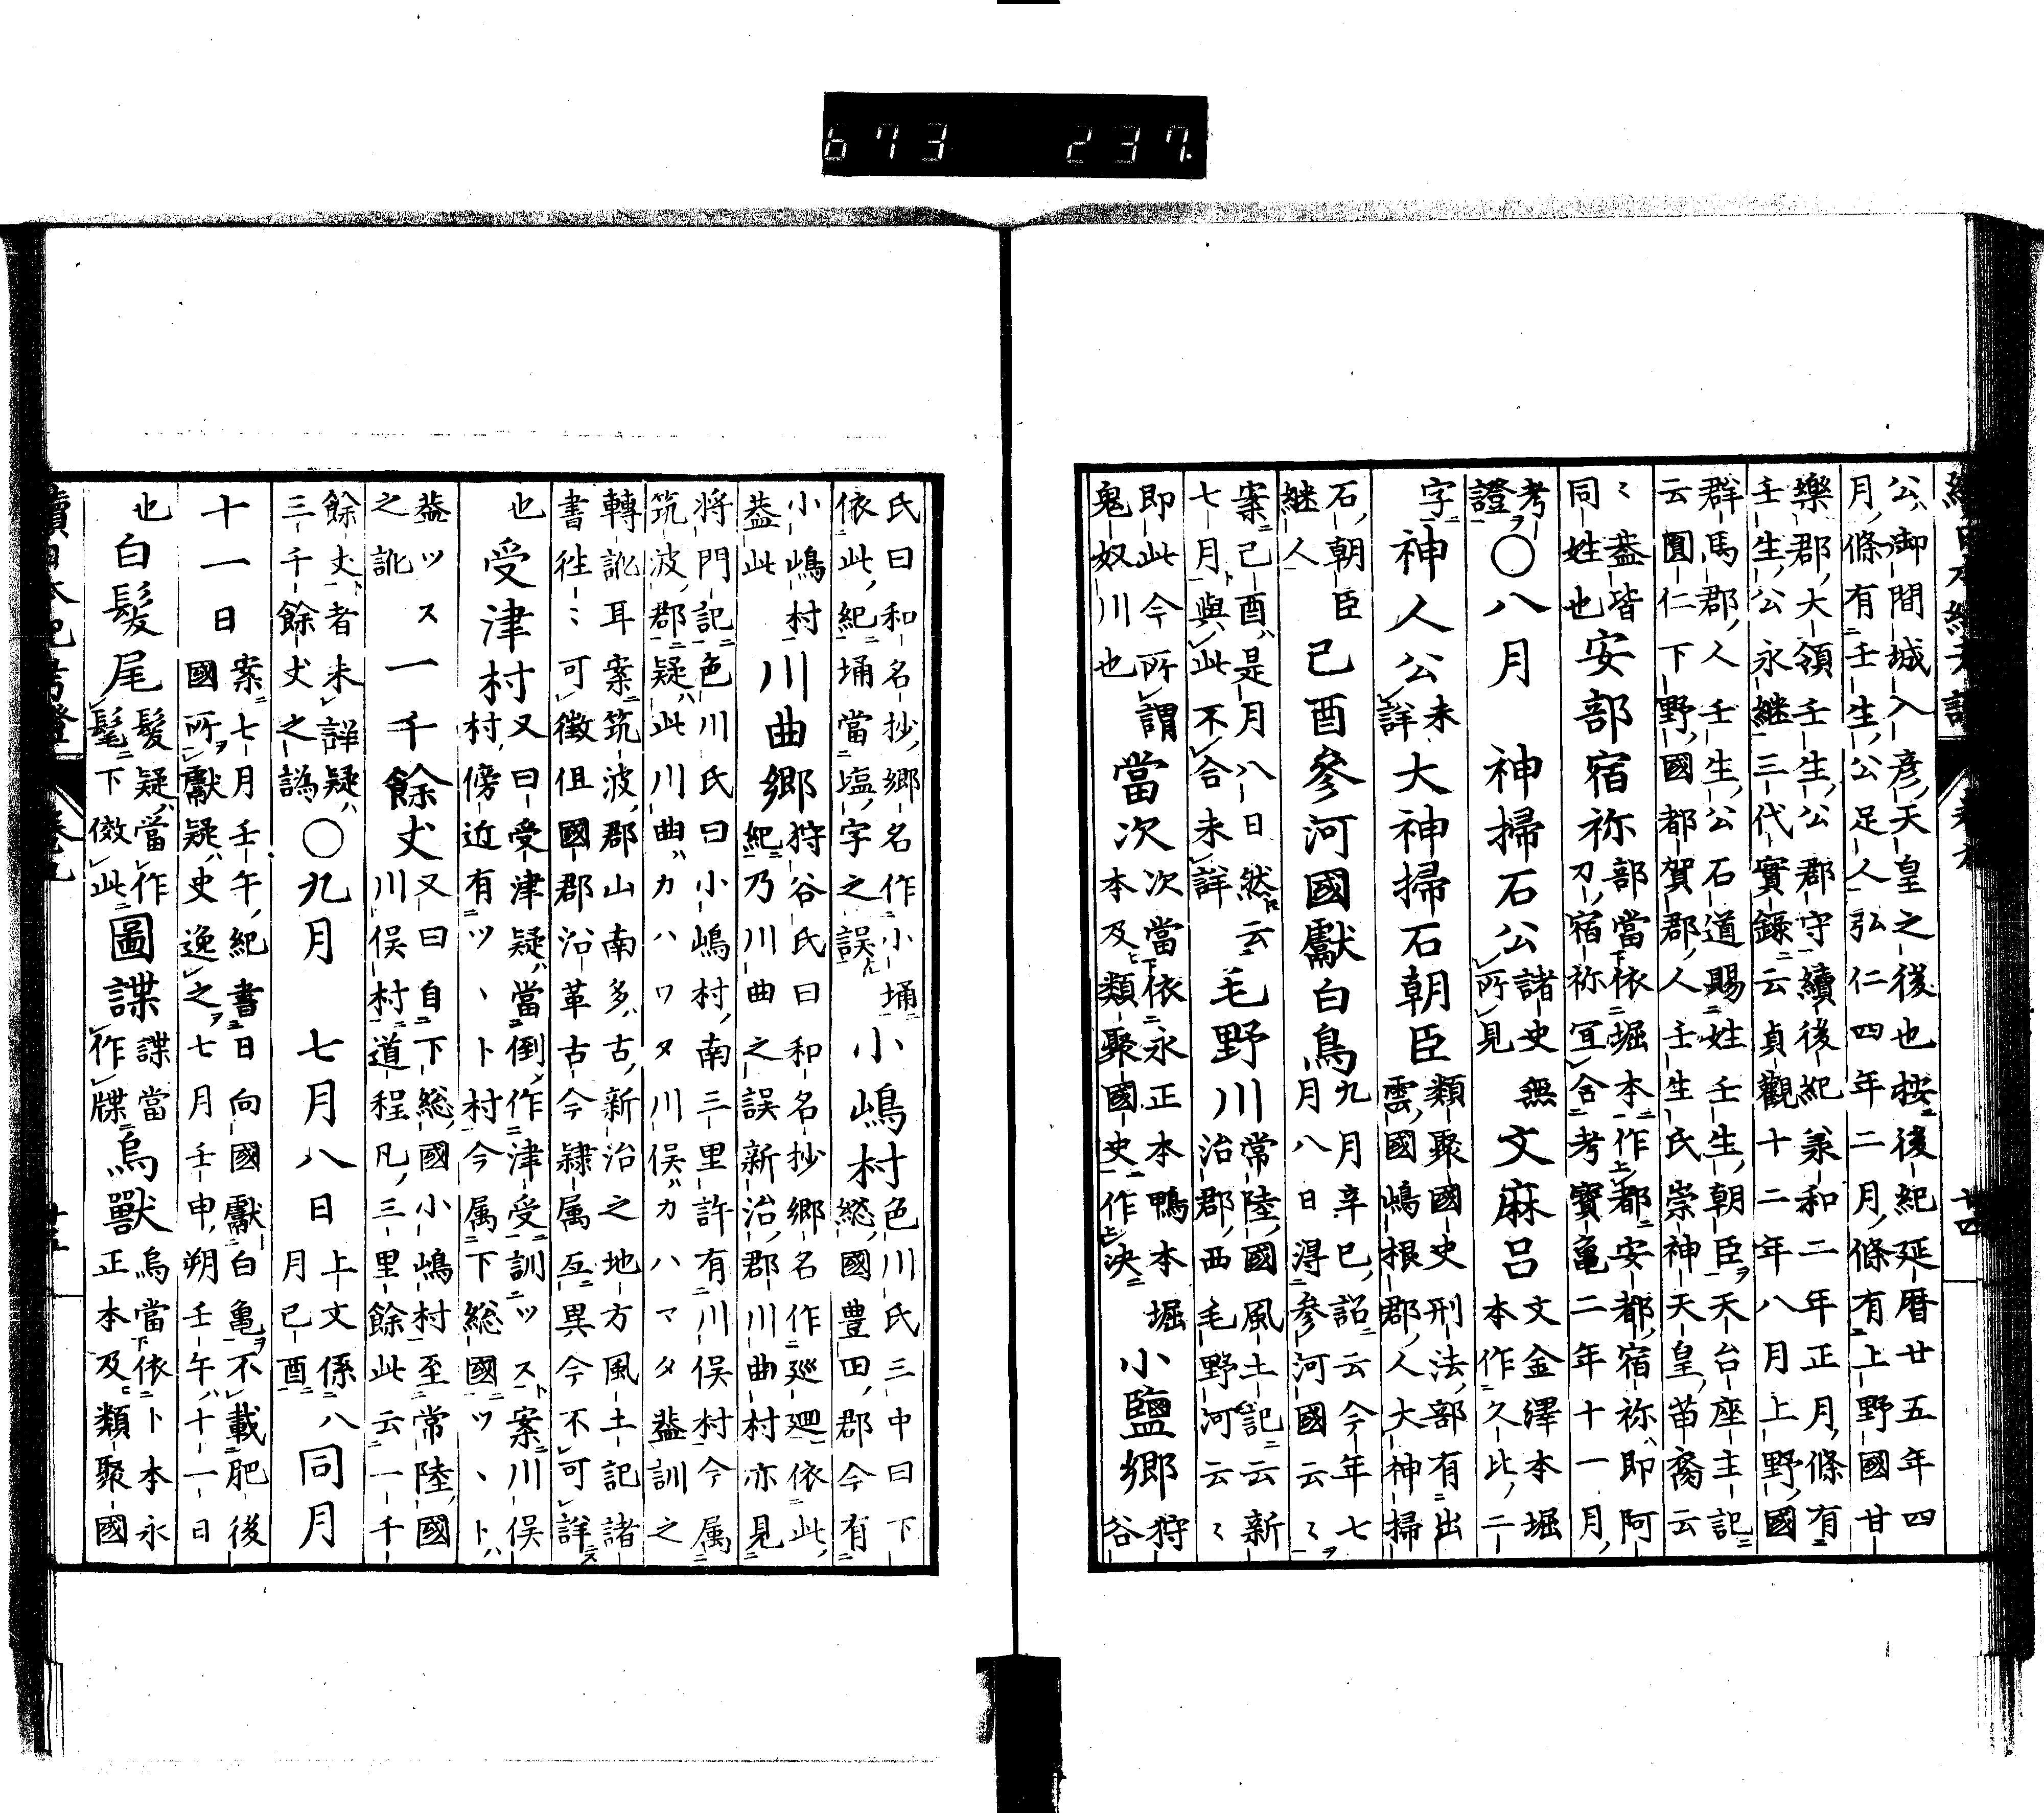 673 237.
公御間城入彦天皇之後也按後紀延暦廿五年四
月條有壬生公足人弘仁四年二月條有上野國甘
樂郡大領壬生公郡守續後紀羕和二年正月條有
壬生公永継三代實錄云貞觀十二年八月上野國
群馬郡人壬生公石道賜姓壬生朝臣天台座主記
云圓仁下野國都賀郡人壬生氏崇神天皇苗裔云
〻葢皆
同姓也
安部宿祢
部當依堀本作都安都宿祢即阿
刀宿祢冝合考寶亀二年十一月
考
證
〇八月 神掃石公
諸史無
所見
文麻呂
文金澤本堀
本作久比二
字
神人公
未
詳
大神掃石朝臣
類聚國史刑法部有出
雲國嶋根郡人大神掃
石朝臣
継人
己酉參河國獻白鳥
九月辛巳詔云今年七
月八日得参河國云〻
案己酉是月八日然云
七月與此不合未詳
毛野川
常陸國風土記云新
治郡西毛野河云〻
即此今所謂
鬼奴川也
當次
次當依永正本鴨本堀
本及類聚國史作决
小鹽郷
狩
谷
氏曰和名抄郷名作小埇
依此紀埇當塩字之誤
小嶋村
色川氏三中曰下
総國豊田郡今有
小嶋村
葢此
川曲郷
狩谷氏曰和名抄郷名作廻依此
紀乃川曲之誤新治郡川曲村亦見
将門記色川氏曰小嶋村南三里許有川俣村今属
筑波郡疑此川曲ハカハワタ川俣ハカハマタ葢訓之
轉訛耳案筑波郡山南多古新治之地方風土記諸
書徃〻可徴伹國郡沿革古今隷属互異今不可詳
也
受津村
又曰受津疑當倒作津受訓ツスト案川俣
村傍近有ツヽト村今属下総國ツヽトハ
葢ツス
之訛
一千餘丈
又曰自下総國小嶋村至常陸國
川俣村道程凡三里餘此云一千
餘丈者未詳疑
三千餘丈之譌
〇九月 七月八日
上文係八
月己酉
同月
十一日
案七月壬午紀書日向國獻白亀不載肥後
國所獻疑史逸之七月壬申朔壬午ハ十一日
也
白髮尾
髮疑當作
髦下傚此
圖諜
諜當
作牒
烏獸
烏當依卜本永
正本及類聚國